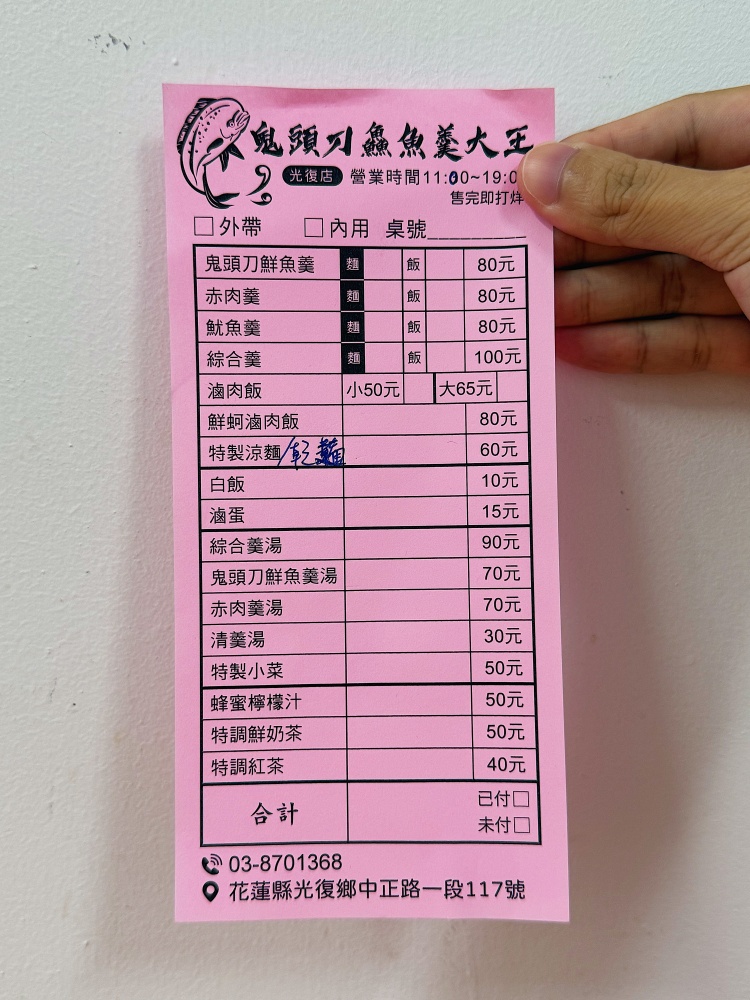 鬼頭刀鱻魚羹大王
光復店 營業時間11:00~19:0
售完即打烊
□外帶 □內用 桌號_________
鬼頭刀鮮魚羹 麵 飯 80元
赤肉羹 麵 飯 80元
魷魚羹 麵 飯 80元
綜合羹 麵 飯 100元
滷肉飯 小50元 大65元
鮮蚵滷肉飯 80元
特製涼麵/乾麵 60元
白飯 10元
滷蛋 15元
綜合羹湯 90元
鬼頭刀鮮魚羹湯 70元
赤肉羹湯 70元
清羹湯 30元
特製小菜 50元
蜂蜜檸檬汁 50元
特調鮮奶茶 50元
特調紅茶 40元
合計 已付□
未付□
03-8701368
花蓮縣光復鄉中正路一段117號